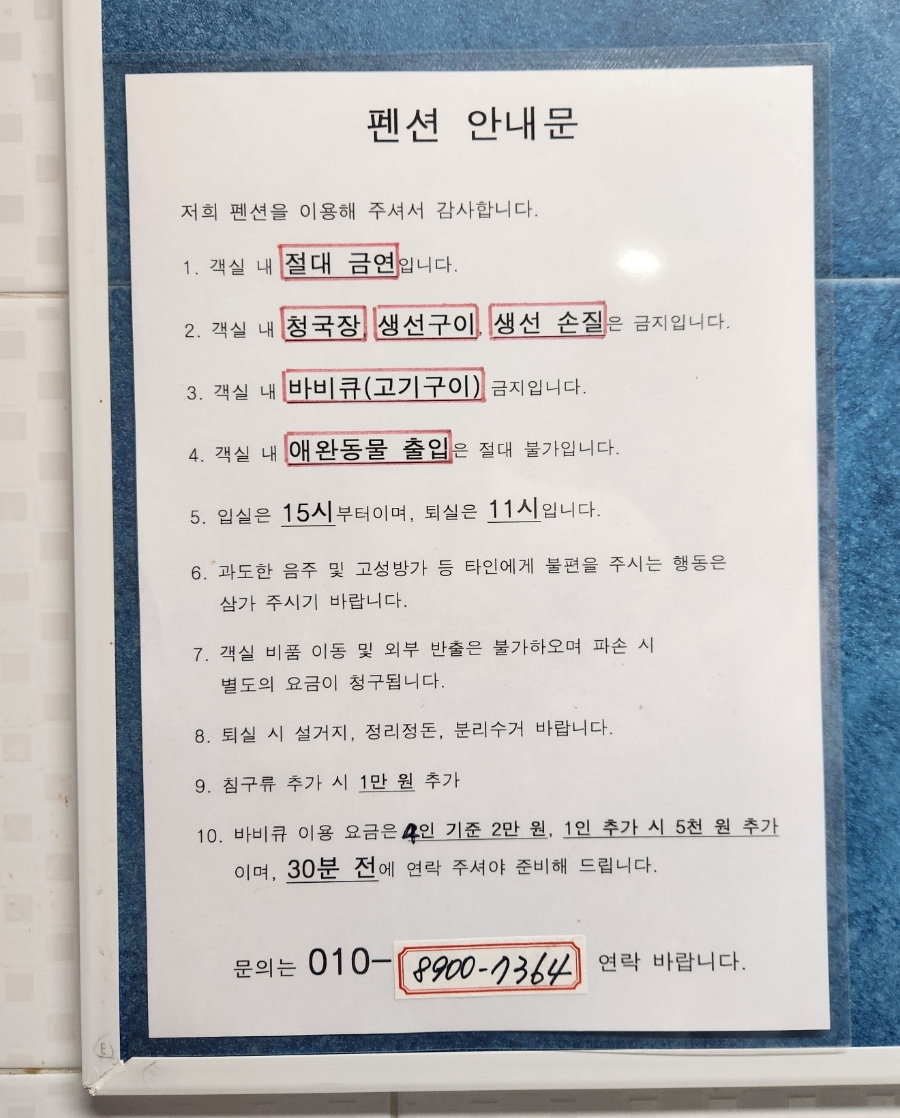 펜션 안내문
저희 펜션을 이용해 주셔서 감사합니다.
1. 객실 내 절대 금연입니다.
2. 객실 내 청국장, 생선구이, 생선 손질은 금지입니다.
3. 객실 내 바비큐(고기구이) 금지입니다.
4. 객실 내 애완동물 출입은 절대 불가입니다.
5. 입실은 15시부터이며, 퇴실은 11시입니다.
6. 과도한 음주 및 고성방가 등 타인에게 불편을 주시는 행동은
삼가 주시기 바랍니다.
7. 객실 비품 이동 및 외부 반출은 불가하오며 파손 시
별도의 요금이 청구됩니다.
8. 퇴실 시 설거지, 정리정돈, 분리수거 바랍니다.
9. 침구류 추가 시 1만 원 추가
10. 바비큐 이용 요금은 4인 기준 2만 원, 1인 추가 시 5천 원 추가
이며, 30분 전에 연락 주셔야 준비해 드립니다.
문의는 010-8900-7364 연락 바랍니다.
E